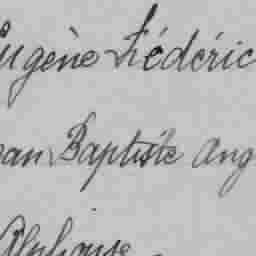 Eugène Frédéric
ean Baptiste Ang
Alphonse